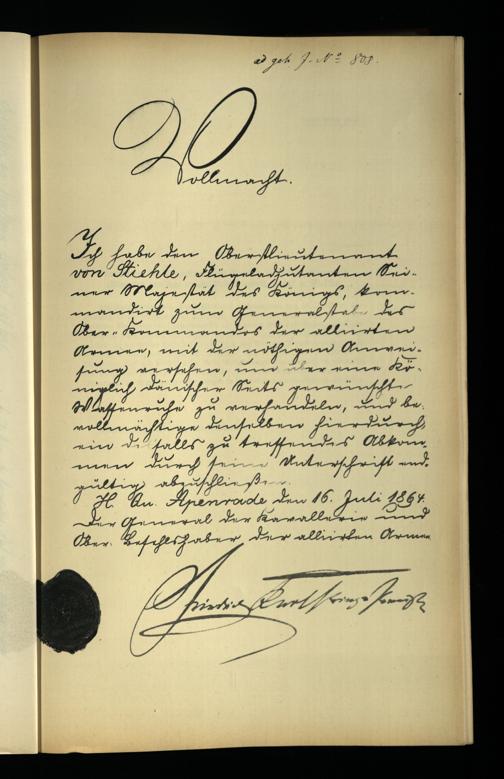 ad geh. J. Nº 808.
Vollmacht.
Ich habe den Oberstlieutenant
von Stiehle, Flügeladjutanten Sei-
ner Majestät des Königs, kom-
mandirt zum Generalstabe des
Ober-Kommandos der alliirten
Armee, mit der nöthigen Anwei-
sung versehen, um über eine Kö-
niglich dänischer Seits gewünschte
Waffenruhe zu verhandeln, und be-
vollmächtige denselben hierdurch
ein desfalls zu treffendes Abkom-
men durch seine Unterschrift end-
gültig abzuschließen.
H. Qu. Apenrade den 16. Juli 1864.
Der General der Kavallerie und
Ober-Befehlshaber der alliirten Armee
Friedrich Karl Prinz v. Preußen